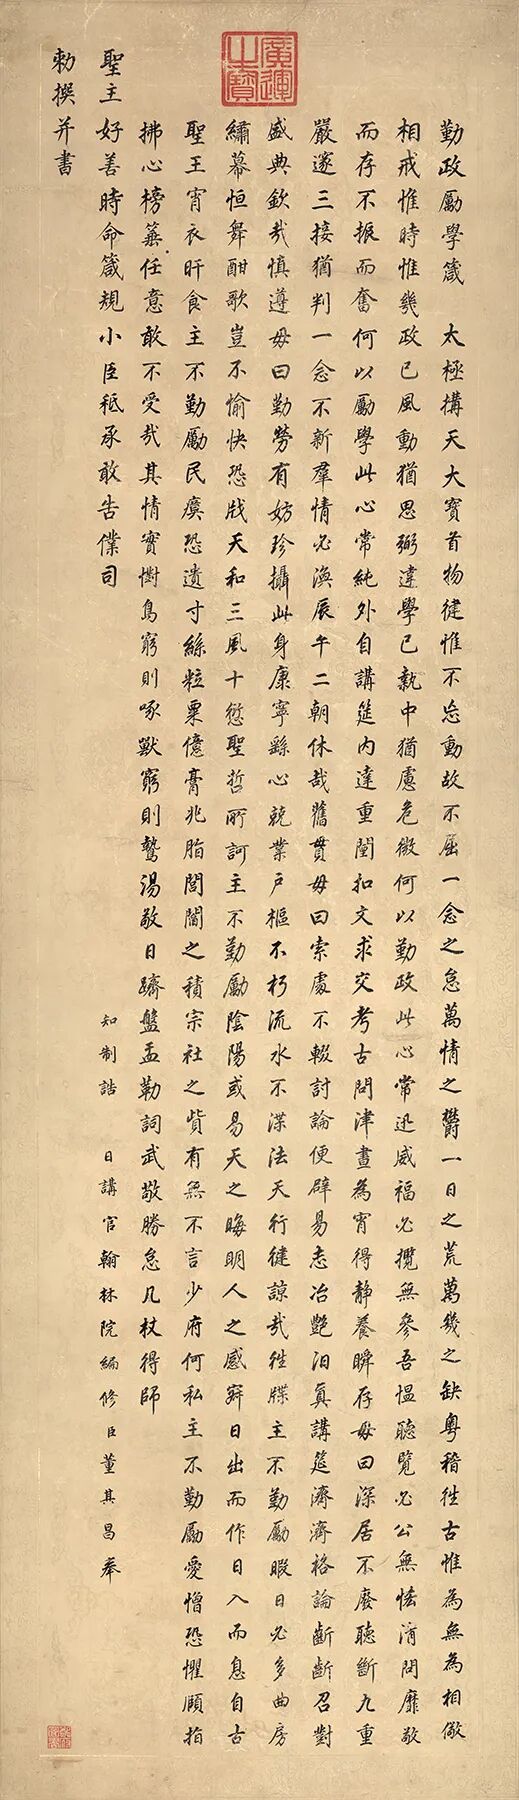 廣運之寶
勤政勵學箴　太極搆天大寶首物健惟不忘動故不屈一念之怠萬情之欝一日之荒萬幾之缺粵稽徃古惟為無為相儆
相戒惟時惟幾政已風動猶思弼違學已執中猶慮危微何以勤政此心常迅威福必攬無參吾愠聽覽必公無恡清問靡敢
而存不振而奮何以勵學此心常純外自講筵内達重闈扣文求交考古問津晝為宵得靜養瞬存毋曰深居不廢聽斷九重
嚴邃三接猶判一念不新羣情必渙辰午二朝休哉舊貫毋曰索處不輟討論便辟易志冶艷汨真講筵濟濟格論齗齗召對
盛典欽哉慎遵毋曰勤勞有妨珍攝此身康寧繇心兢業戶樞不朽流水不渫法天行健諒哉徃牒主不勤勵暇日必多曲房
繡幕恒舞酣歌豈不愉快恐戕天和三風十愆聖哲所訶主不勤勵陰陽或易天之晦明人之感寤日出而作日入而息自古
聖王宵衣旰食主不勤勵民瘼恐遺寸絲粒粟億膏兆脂閭閻之積宗社之貲有無不言少府何私主不勤勵愛憎恐懼頤指
拂心榜箠任意敢不受哉其情實懟鳥窮則啄獸窮則鷙湯敬日躋盤盂勒詞武敬勝怠几杖得師
聖主好善時命箴規小臣秪承敢告僕司
知制誥　日講官翰林院編修臣董其昌奉
勅撰并書